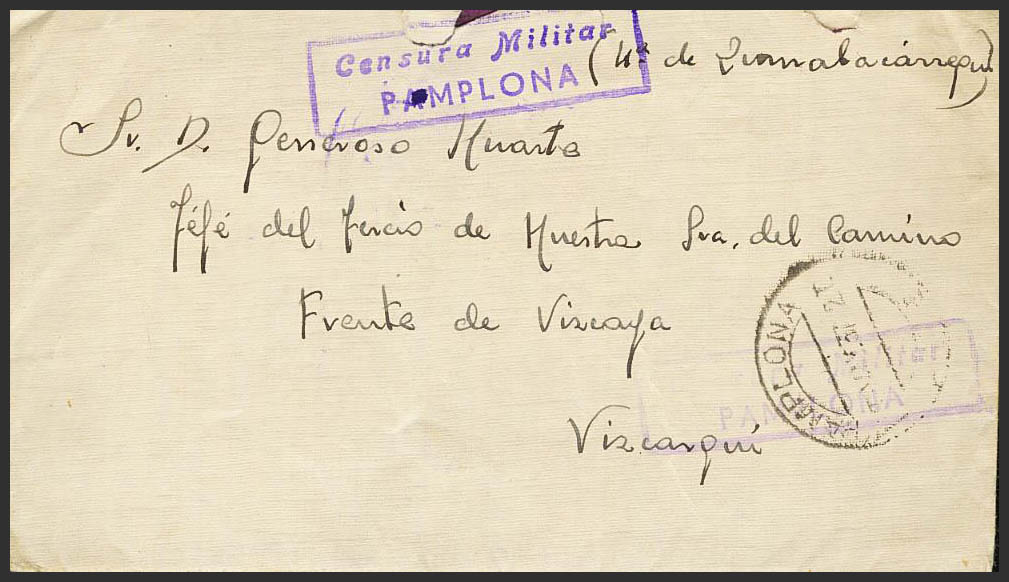 Censura Militar
PAMPLONA
(4ª de Zumalacárregui)
Sr. D. Generoso Huarte
Jéfé del Tercio de Nuestra Sra. del Camino
Frente de Vizcaya
Vizcargui
PAMPLONA
Militar
PAMPLONA